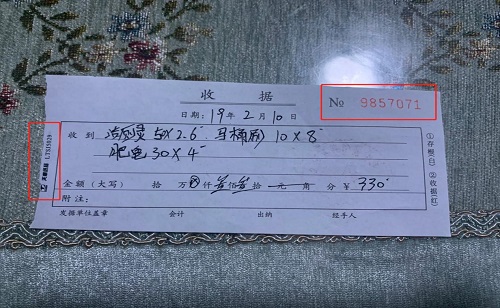 收 据
№ 9857071
日期：19年2月10日
收到 洁厕灵 50X2.6 马桶刷 10X8
肥皂 30X4
金额（大写） 拾 万 仟 叁佰叁拾 元 角 分 ¥ 330
附注：
发据单位盖章 会计 出纳 经手人
①存根(白) ②收据(红)